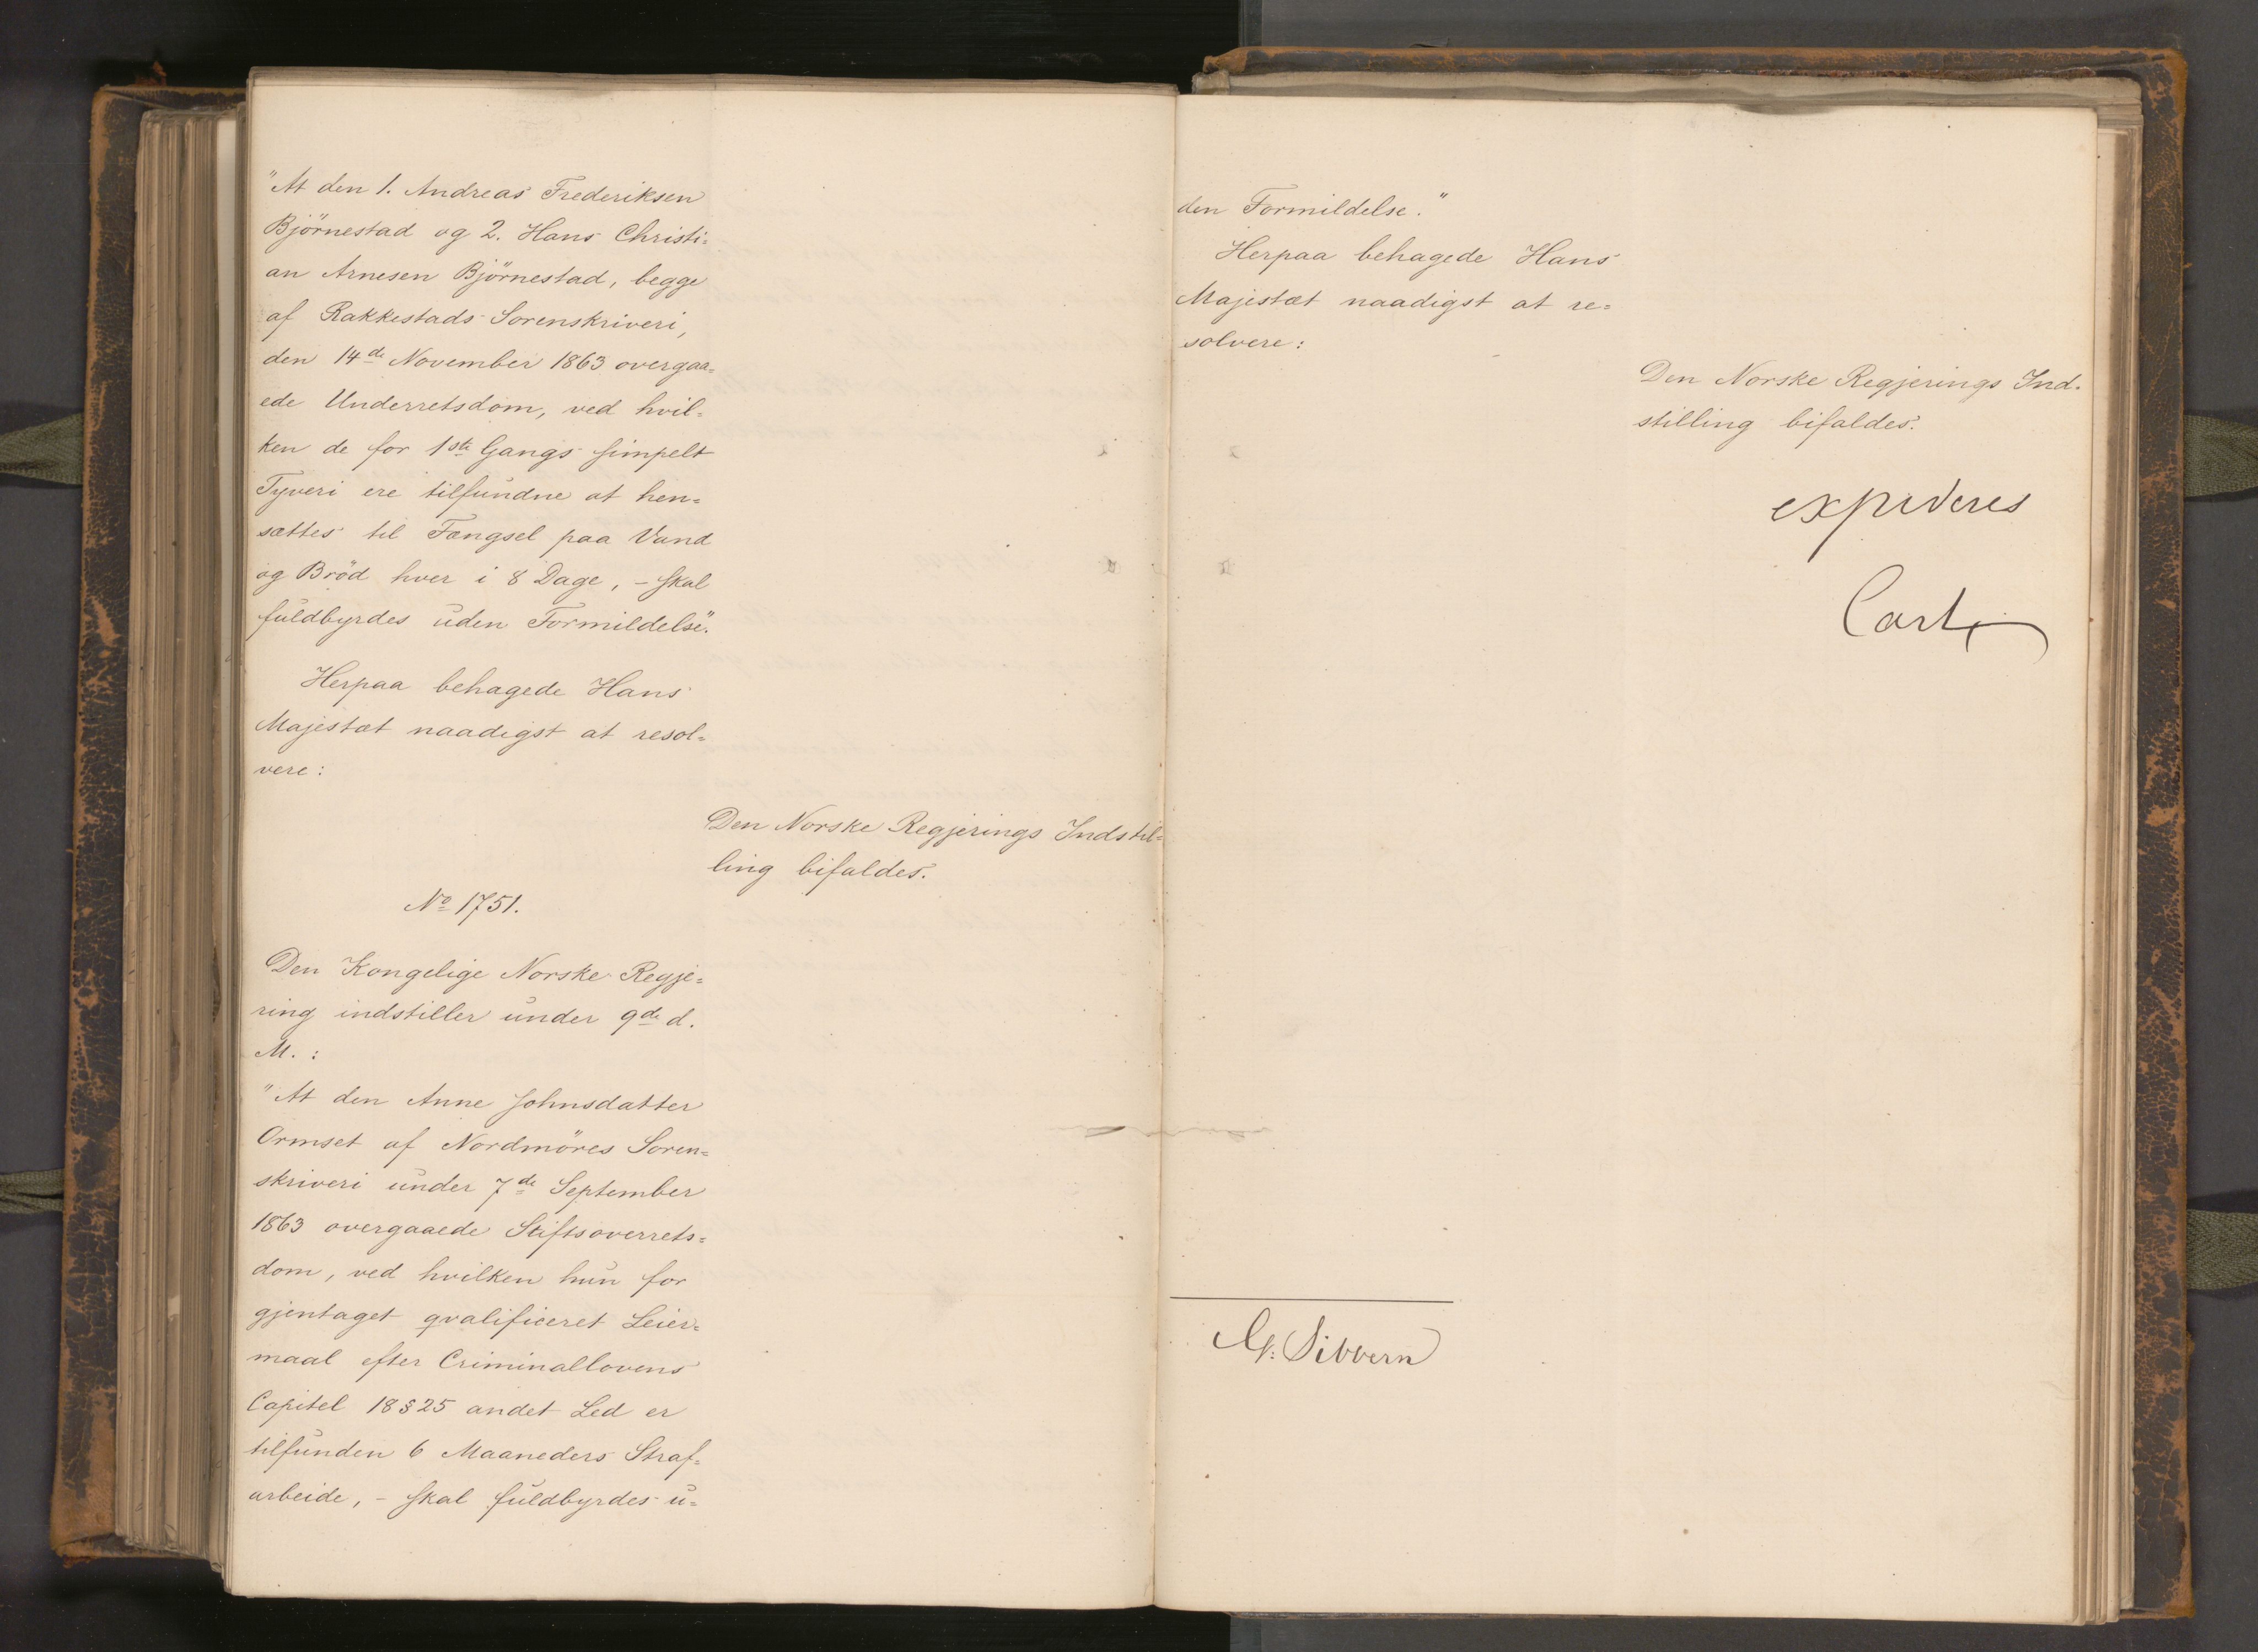 "At den 1. Andreas Frederiksen
Björnestad og 2. Hans Christi=
an Arnesen Björnestad, begge
af Rakkestads Sorenskriveri,
den 14de November 1863 overgaa=
ede Underretsdom, ved hvil=
ken de for 1ste Gangs simpelt
Tyveri ere tilfundne at hen=
sættes til Fængsel paa Vand
og Bröd hver i 8 Dage, - skal
fuldbyrdes uden Formildelse."
Herpaa behagede Hans
Majestæt naadigst at resol=
vere:
Den Norske Regjerings Indstil=
ling bifaldes.
No 1751.
Den Kongelige Norske Regje=
ring indstiller under 9de d.
M. :
"At den Anne Johnsdatter
Ormset af Nordmöres Soren=
skriveri under 7de September
1863 overgaaede Stiftsoverrets=
dom, ved hvilken hun for
gjentaget qvalificeret Leier=
maal efter Criminallovens
Capitel 18 § 25 andet Led er
tilfunden 6 Maaneders Straf=
arbeide, - skal fuldbyrdes u=
den Formildelse."
Herpaa behagede Hans
Majestæt naadigst at re=
solvere:
Den Norske Regjerings Ind=
stilling bifaldes.
expederes
Carl
G. Sibbern